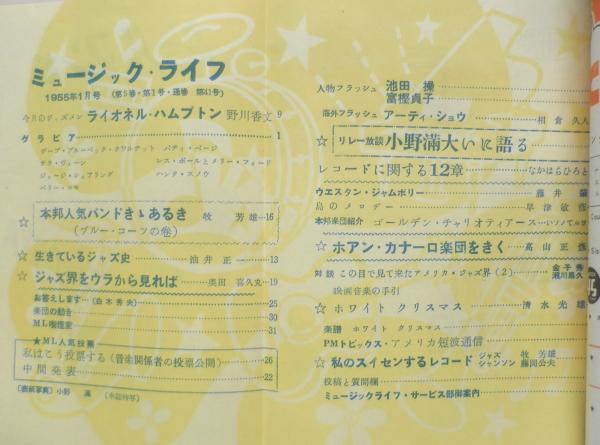 ミュージック・ライフ
1955年1月号 (第5巻・第1号・通巻 第41号)
今月のジャズメン ライオネル・ハムプトン 野川香文 9
グラビア 1
デーブ・ブルーベック・クワルテット パティ・ページ
サラ・ヴォーン レス・ポールとメリー・フォード
ジョージ・シェアリング ハンク・スノウ
ペリー・コモ
☆ 本邦人気バンドきゝあるき 牧 芳雄 16
(ブルー・コーツの巻)
☆ 生きているジャズ史 油井正一 13
☆ ジャズ界をウラから見れば 奥田喜久丸 19
お答えします (白木秀夫) 25
楽団の動き 30
ML喫煙室 31
★ML人気投票
私はこう投票する (音楽関係者の投票公開) 26
中間発表 22
(表紙写真) 小野 満 (本誌特写)
人物フラッシュ 池田 操
富樫貞子
海外フラッシュ アーティ・ショウ 相倉久人
☆ リレー放談 小野滿大いに語る
レコードに関する12章 なかはらひろと
ウエスタン・ジャムボリー 藤井肇
島のメロデー 早津敏彦
本邦楽団紹介 ゴールデン・チャリオティアース いソノてルヲ
☆ ホアン・カナーロ楽団をきく 高山正彦
対談 この目で見て来たアメリカ・ジャズ界 (2) 金子秀
瀬川昌久
映画音楽の手引
☆ ホワイト クリスマス 清水光雄
楽譜 ホワイト クリスマス
PMトピックス・アメリカ短波通信
☆ 私のスイセンするレコード ジャズ 牧 芳雄
シャンソン 藤岡公夫
投稿と質問欄
ミュージックライフ・サービス部御案内